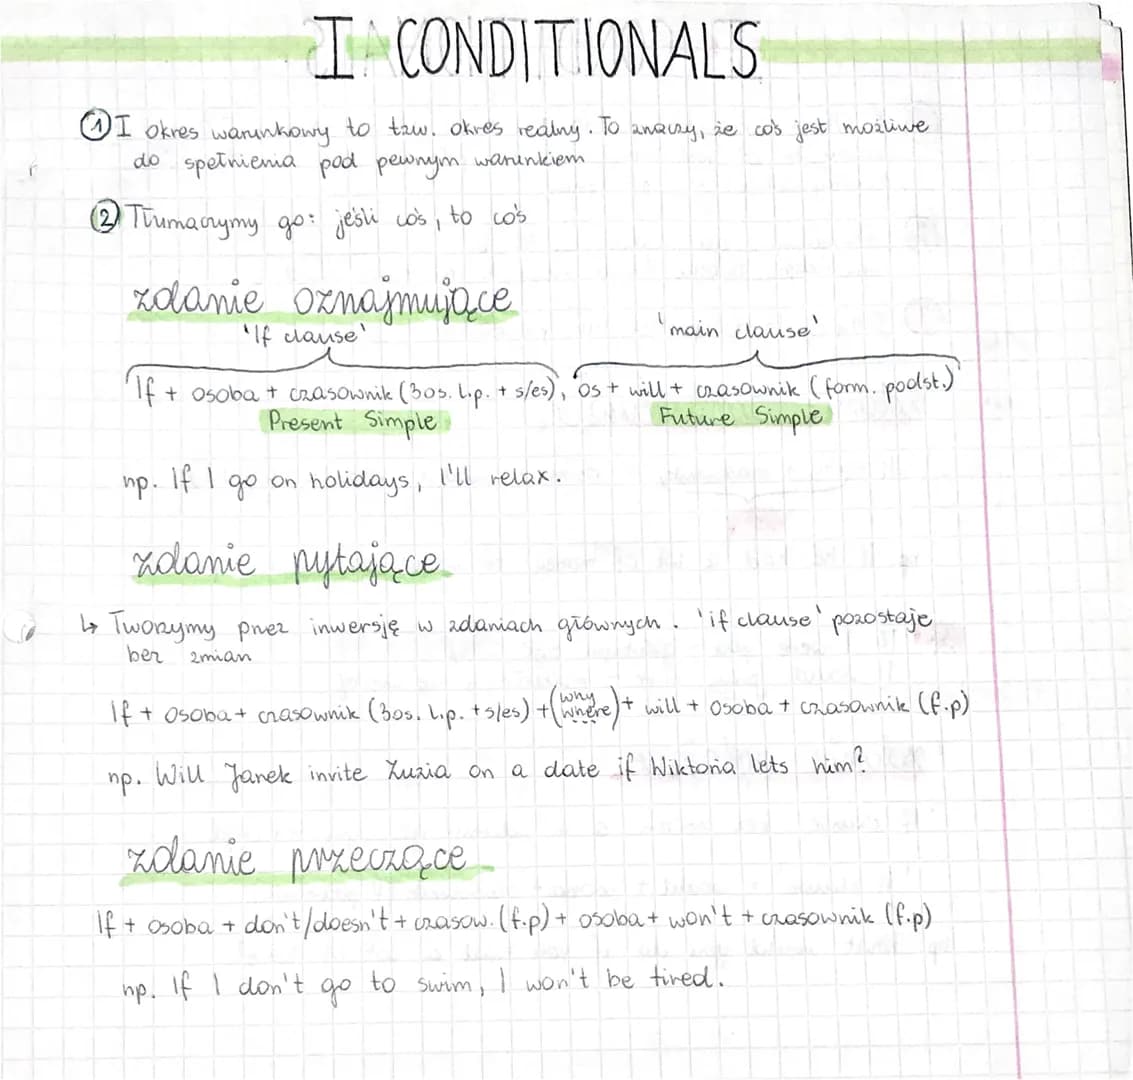 I CONDITIONALS
① I okres warunkowy to tzw. okres realny. To znaczy, że coś jest możliwe
do spełnienia pod pewnym warunkiem
② Tłumaczymy go: jeśli coś, to coś
zdanie oznajmujące
'If clause' 'main clause'
If + osoba + czasownik (3os. l.p. + s/es), os + will + czasownik (form. podst.)
Present Simple Future Simple
np. If I go on holidays, I'll relax.
zdanie pytające
↳ Tworzymy przez inwersję w zdaniach głównych. 'if clause' pozostaje
bez zmian
If + osoba + czasownik (3os. l.p. + s/es) + (why where) + will + osoba + czasownik (f.p)
np. Will Janek invite Zuzia on a date if Wiktoria lets him?
zdanie przeczące
If + osoba + don't/doesn't + czasow. (f.p) + osoba + won't + czasownik (f.p)
np. If I don't go to swim, I won't be tired.